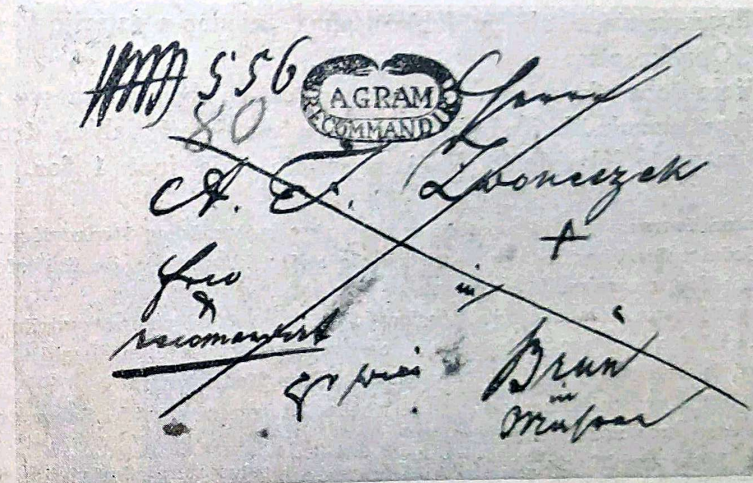 556
AGRAM
RECOMMANDIRT
Herrn
80
A. F. Zwoneczek
+
frco
&
recomandirt
in
Brün
in
Mähren